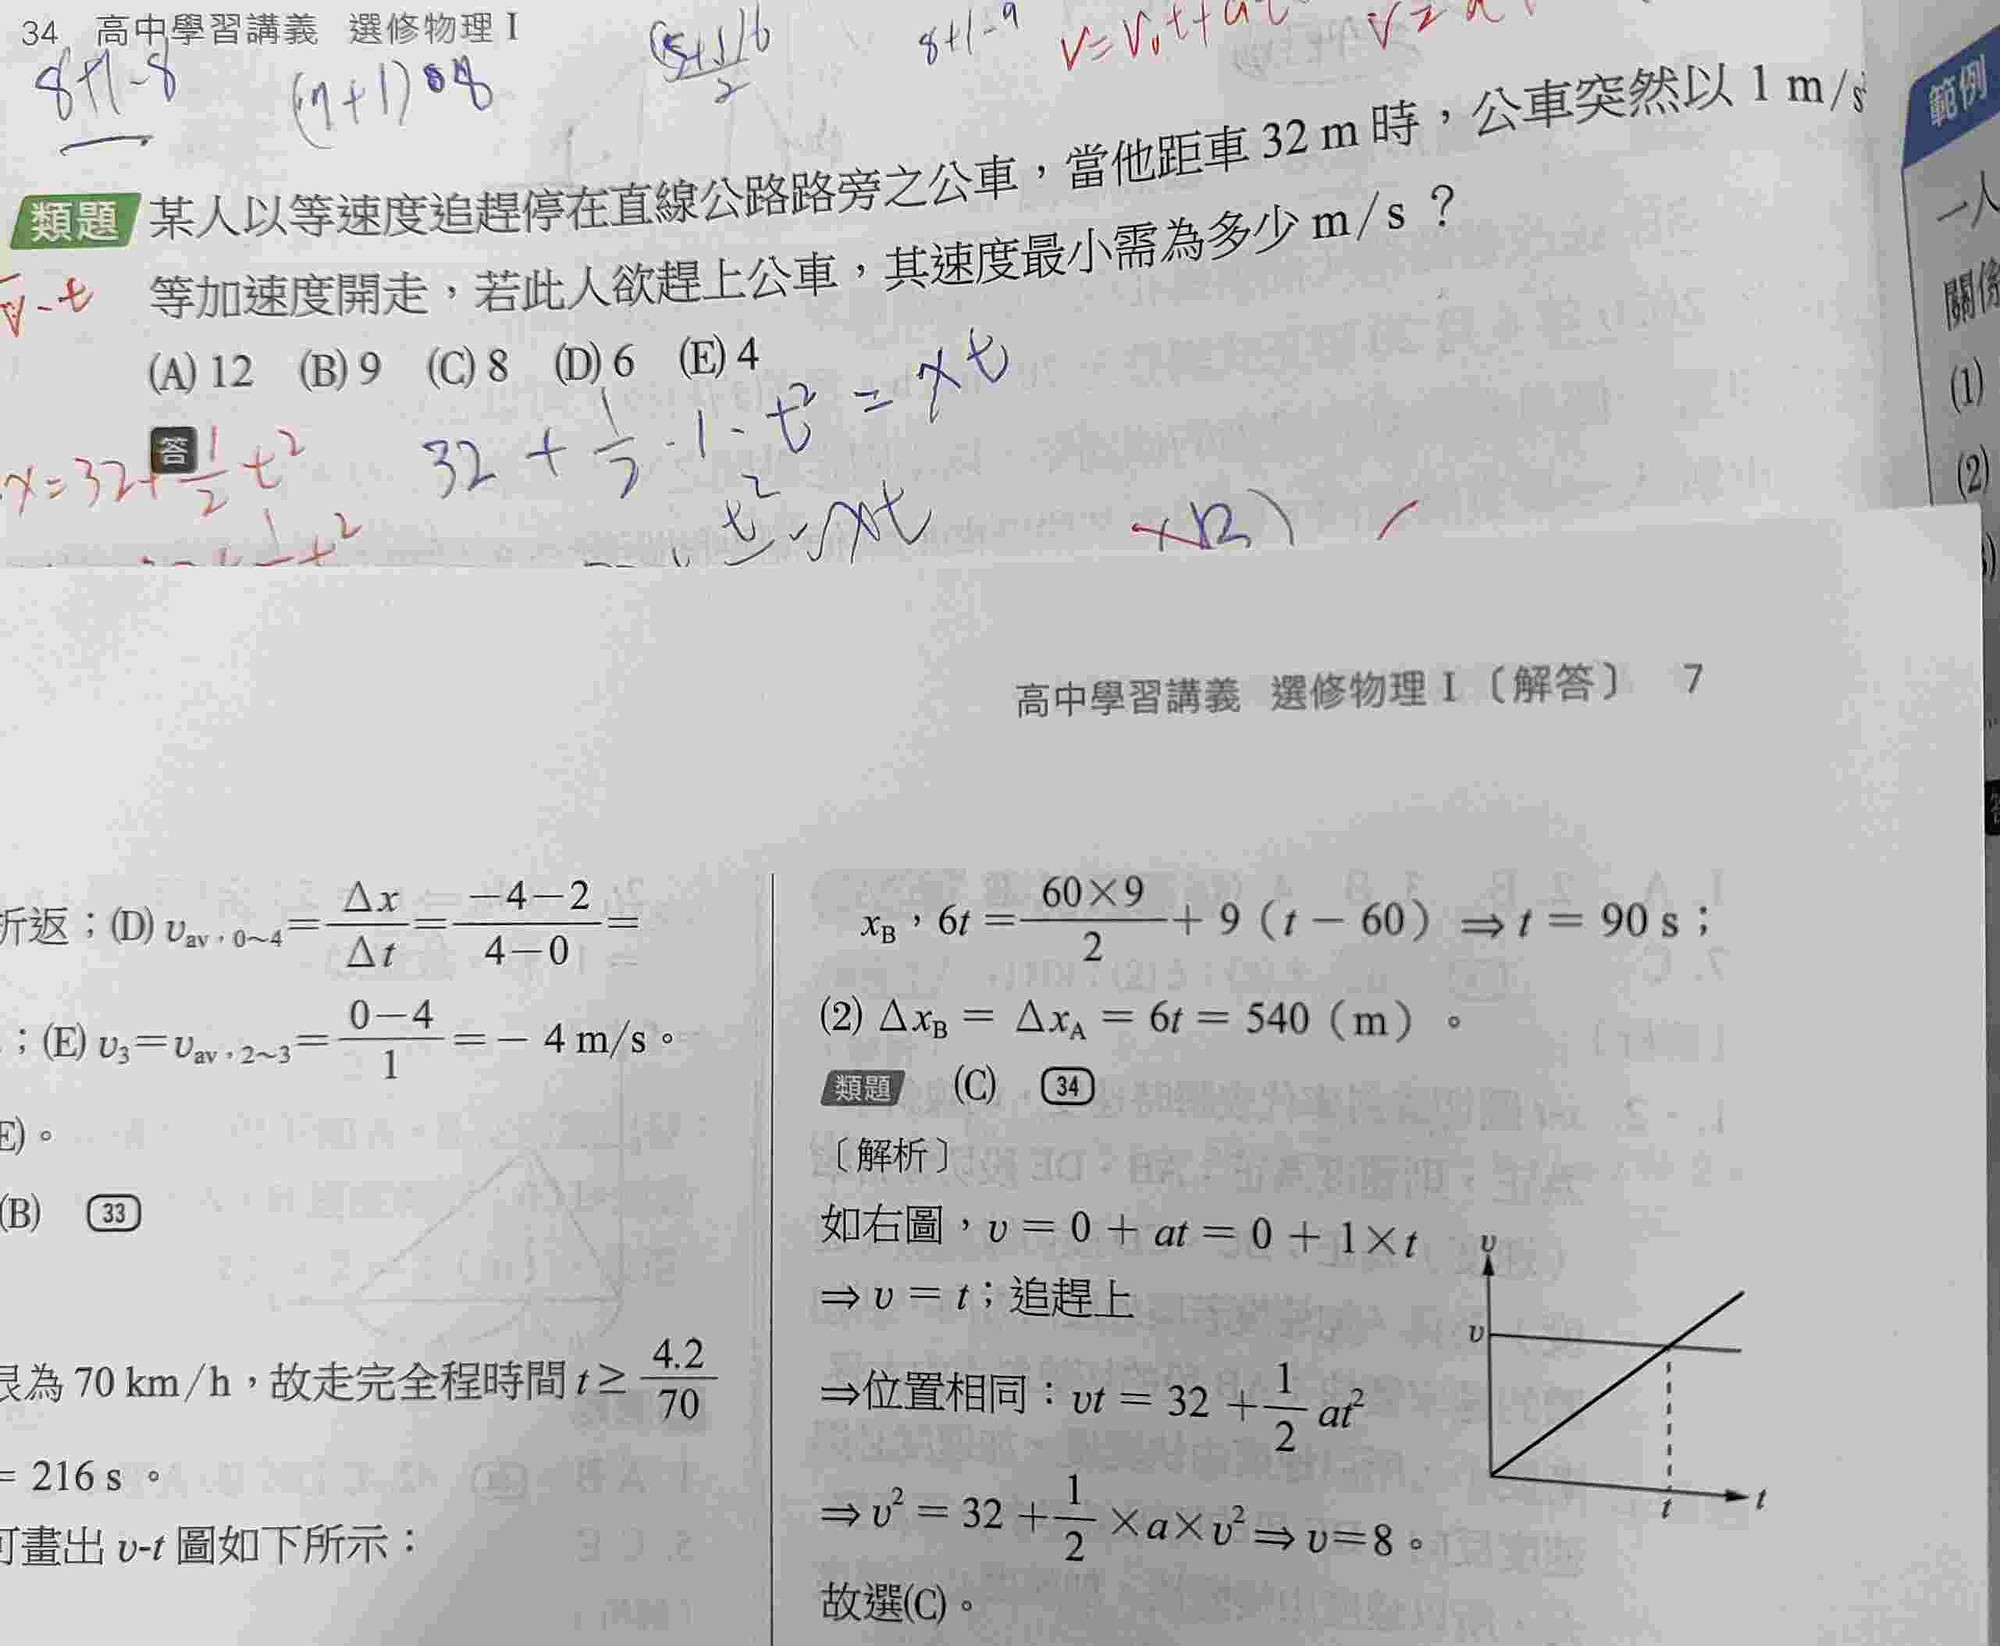 34 高中學習講義 選修物理 I
8+1-8
(n+1)
8+1-9
類題 某人以等速度追趕停在直線公路路旁之公車，當他距車 32 m 時，公車突然以 1 m/s²
等加速度開走，若此人欲趕上公車，其速度最小需為多少 m/s？
(A) 12 (B) 9 (C) 8 (D) 6 (E) 4
答
x=32+1/2 t²
32 + 1/2 · 1 · t² = xt
範例
一人
關係
(1)
(2)
高中學習講義 選修物理 I〔解答〕 7
折返；(D) v_av，0~4 = Δx/Δt = (-4-2)/(4-0) =
；(E) v₃ = v_av，2~3 = (0-4)/1 = - 4 m/s。
E)。
(B) 33
艮為 70 km/h，故走完全程時間 t ≥ 4.2/70
= 216 s。
可畫出 v-t 圖如下所示：
x_B，6t = (60×9)/2 + 9（t - 60）⇒ t = 90 s；
(2) Δx_B = Δx_A = 6t = 540（m）。
類題 (C) 34
〔解析〕
如右圖，v = 0 + at = 0 + 1×t
⇒ v = t；追趕上
⇒位置相同：vt = 32 + 1/2 at²
⇒ v² = 32 + 1/2 ×a×v² ⇒ v=8。
故選(C)。
v
v
t
t